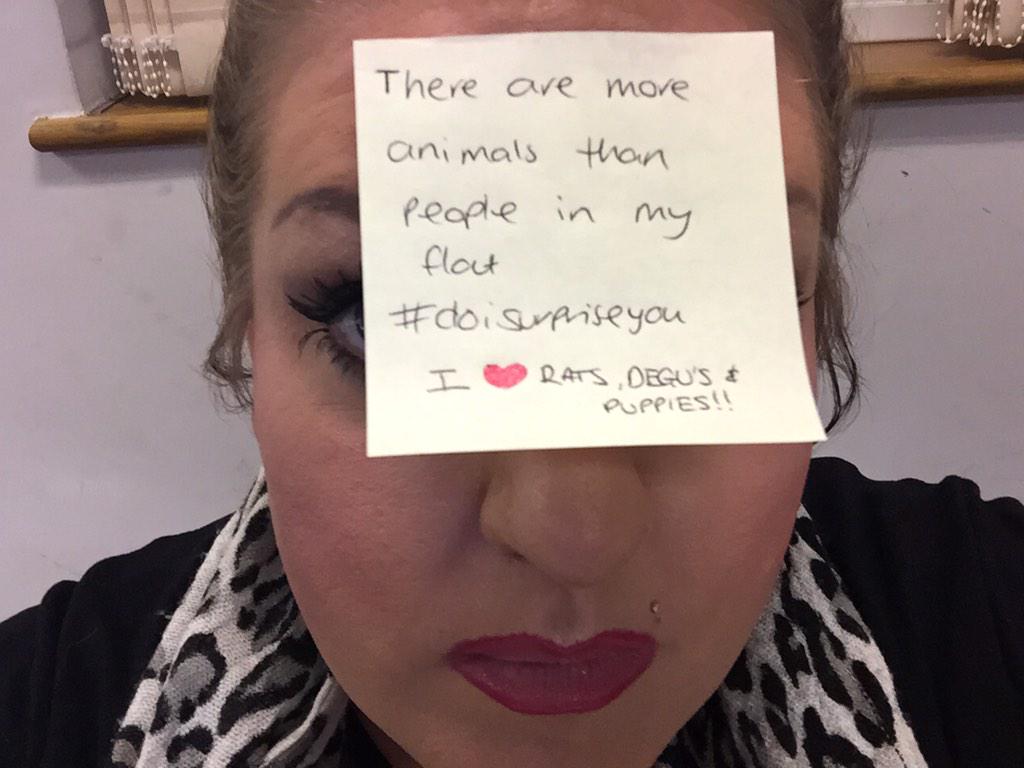 There are more
animals than
people in my
flat
#doisurpriseyou
I ❤ RATS, DEGU'S &
PUPPIES!!